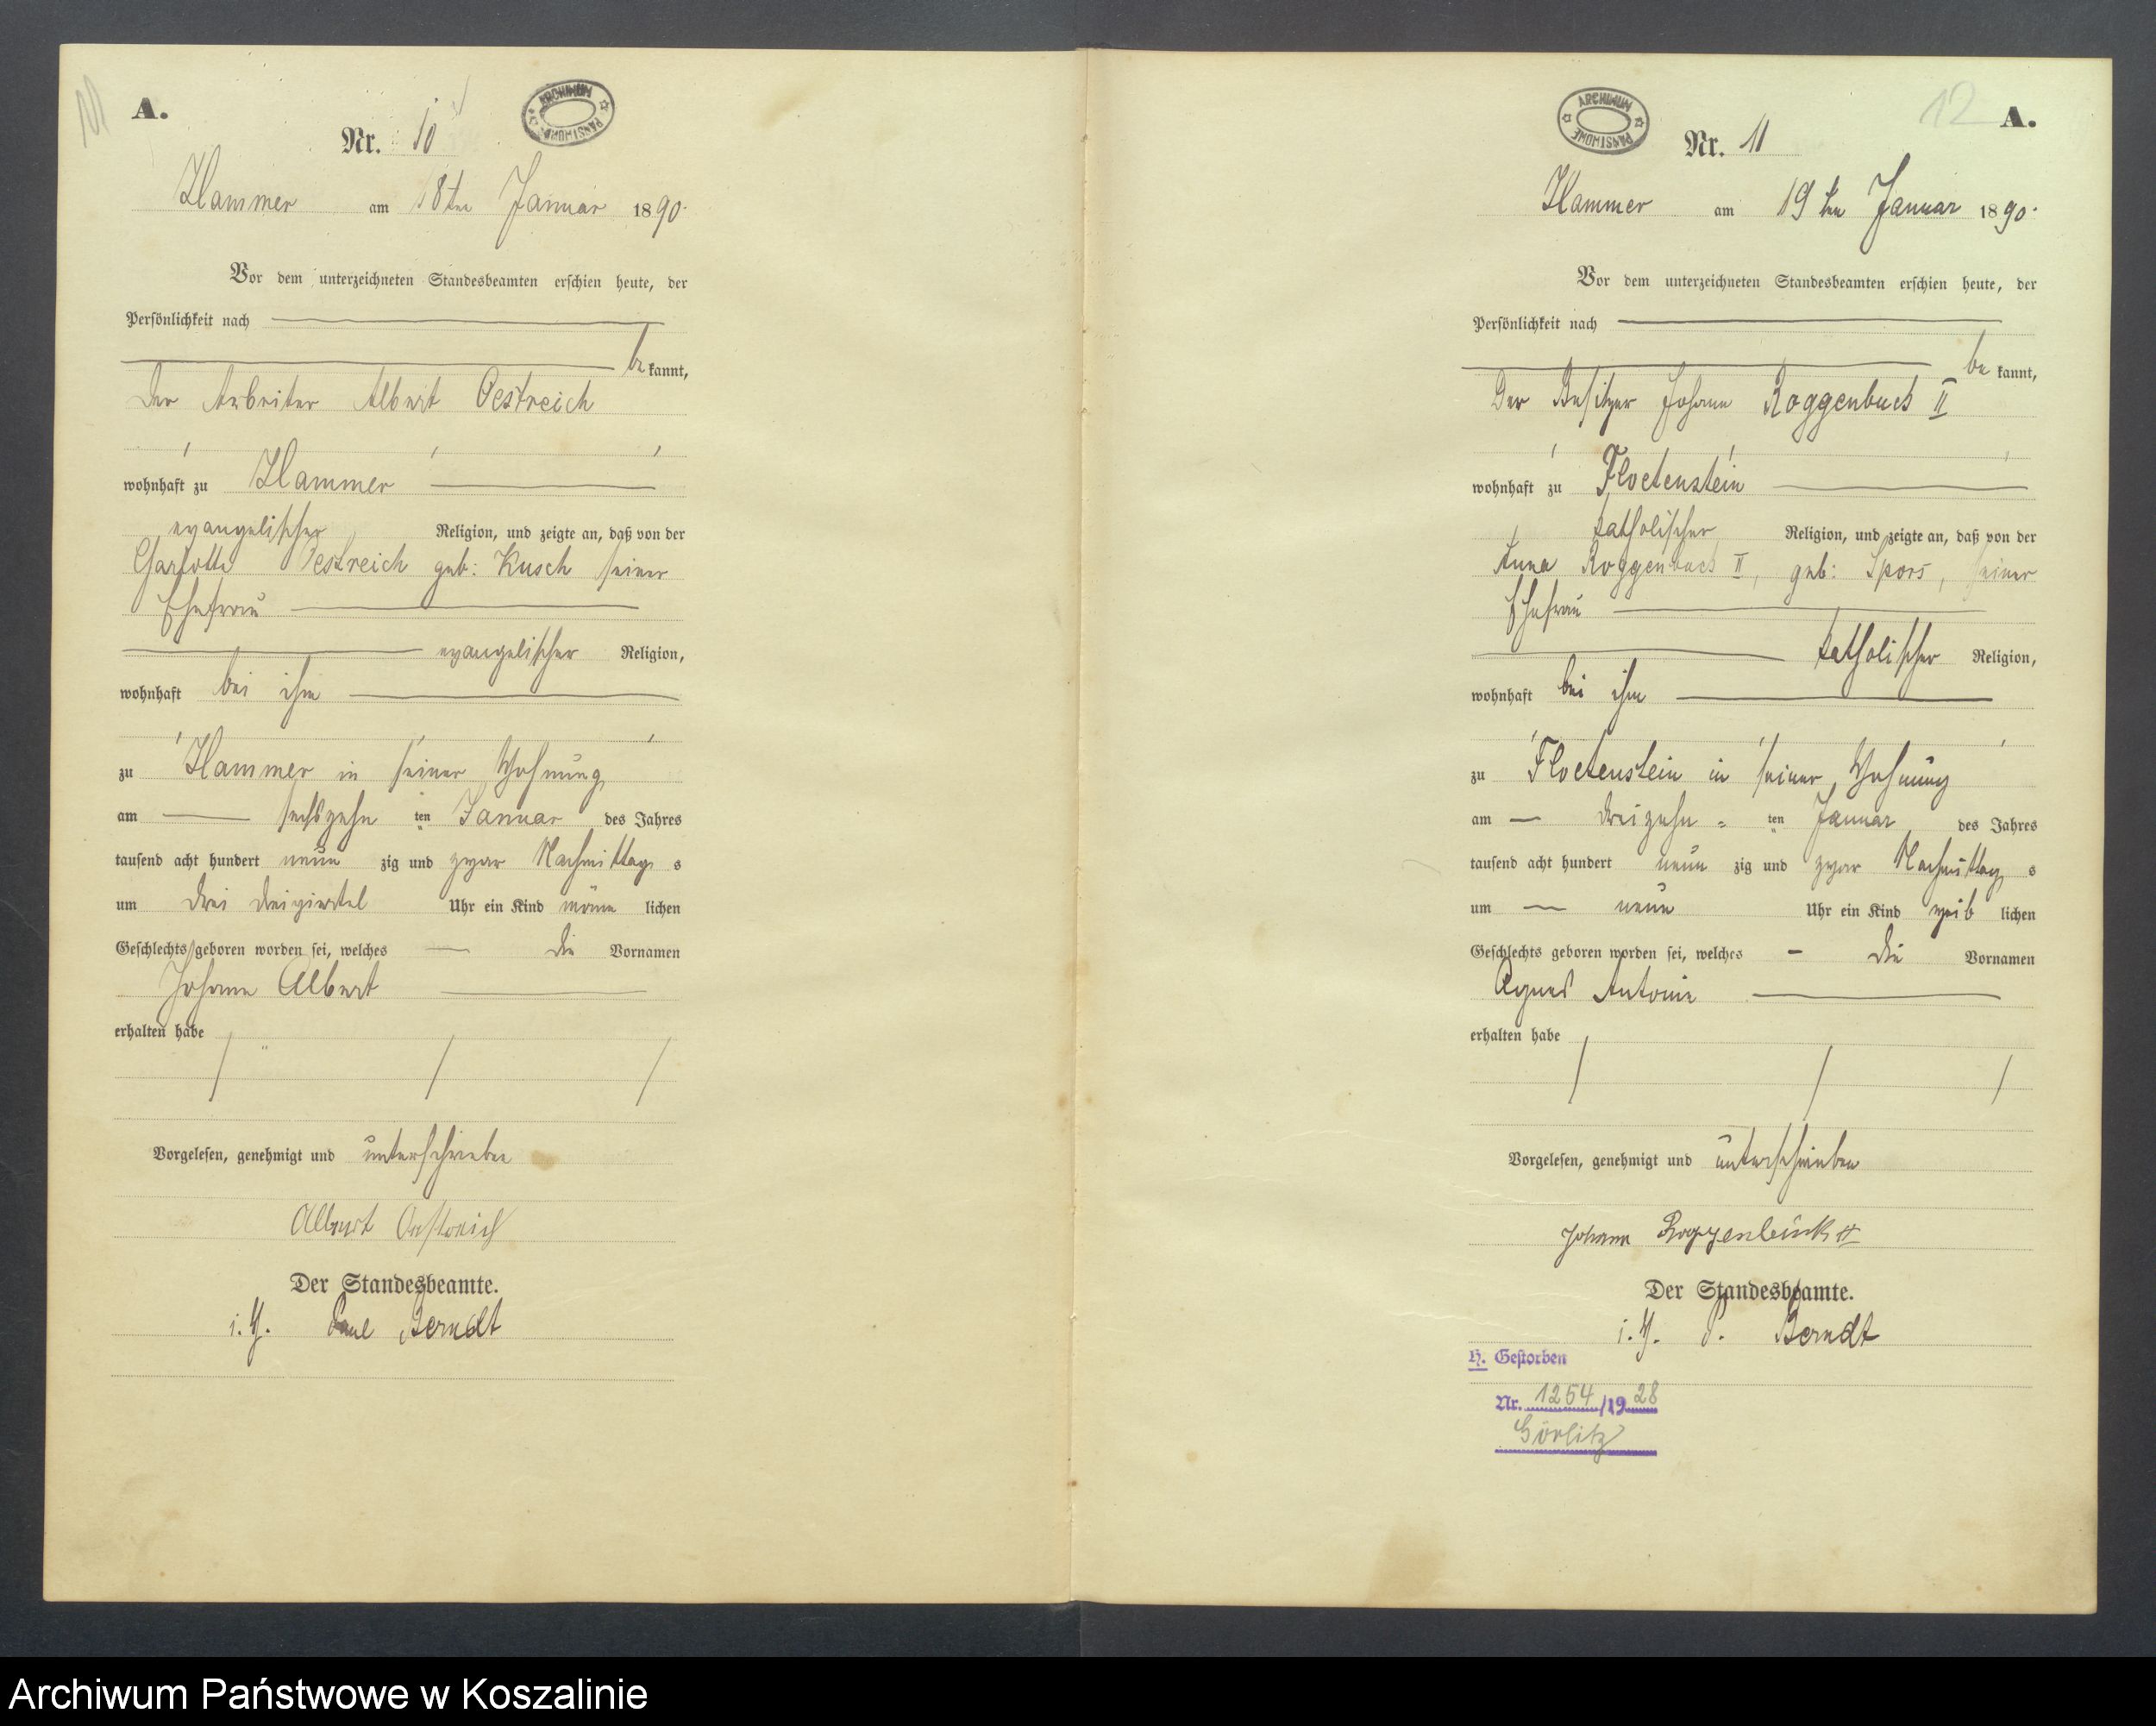 11
A.
Nr. 10
ARCHIWUM PAŃSTWOWE
Hammer am 18ten Januar 1890.
Vor dem unterzeichneten Standesbeamten erschien heute, der
Persönlichkeit nach
be kannt,
der Arbeiter Albert Oestreich
wohnhaft zu Hammer
evangelischer Religion, und zeigte an, daß von der
Charlotte Oestreich geb: Kusch seiner
Ehefrau
evangelischer Religion,
wohnhaft bei ihm
zu Hammer in seiner Wohnung
am sechszehn ten Januar des Jahres
tausend acht hundert neun zig und zwar Nachmittag s
um drei dreiviertel Uhr ein Kind männ lichen
Geschlechts geboren worden sei, welches die Vornamen
Johann Albert
erhalten habe
Vorgelesen, genehmigt und unterschrieben
Albert Oestreich
Der Standesbeamte.
i. V. Paul Berndt
12
A.
ARCHIWUM PAŃSTWOWE
Nr. 11
Hammer am 19ten Januar 1890.
Vor dem unterzeichneten Standesbeamten erschien heute, der
Persönlichkeit nach
be kannt,
Der Besitzer Johann Roggenbuck II
wohnhaft zu Floetenstein
katholischer Religion, und zeigte an, daß von der
Anna Roggenbuck II, geb: Spors, seiner
Ehefrau
katholischer Religion,
wohnhaft bei ihm
zu Floetenstein in seiner Wohnung
am dreizehn ten Januar des Jahres
tausend acht hundert neun zig und zwar Nachmittag s
um neun Uhr ein Kind weib lichen
Geschlechts geboren worden sei, welches die Vornamen
Agnes Antonie
erhalten habe
Vorgelesen, genehmigt und unterschrieben
Johann Roggenbuck II
Der Standesbeamte.
i. V. P. Berndt
H. Gestorben
Nr. 1254/1928
Görlitz
Archiwum Państwowe w Koszalinie